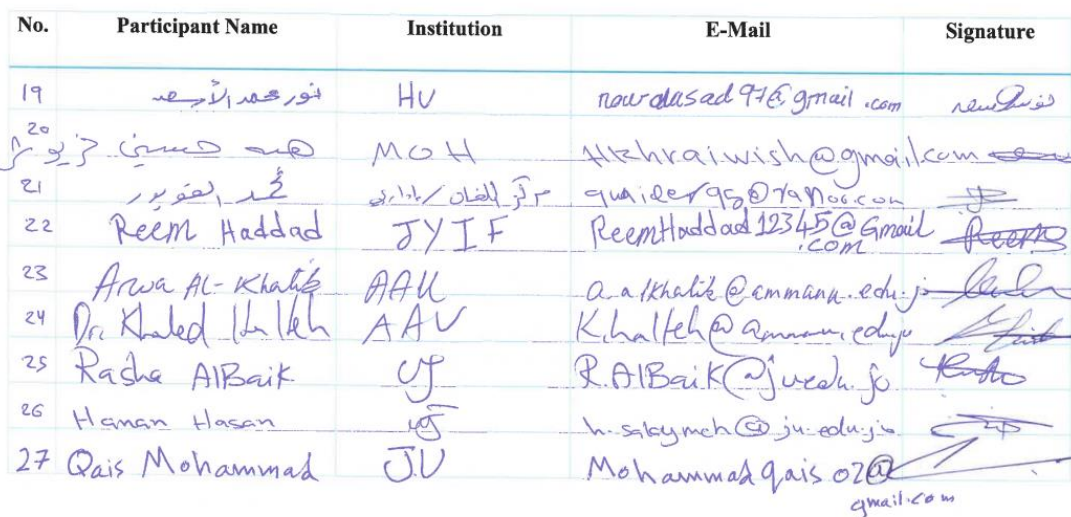 No. Participant Name Institution E-Mail Signature
19 نور محمد الأسعد HU nouralasad97@gmail.com
20 هبه حسين MOH Hkhraiwish@gmail.com
21 محمد القويدر quaider98@yahoo.com
22 Reem Haddad JYIF ReemHaddad12345@Gmail Reem
.com
23 Arwa AL-Khatib AAU a.alkhatib@ammanu.edu.jo
24 Dr. Khaled Halteh AAU K.halteh@ammanu.edu.jo
25 Rasha AlBaik UJ R.AlBaik@ju.edu.jo
26 Hanan Hasan UJ h.salaymeh@ju.edu.jo
27 Qais Mohammad J.U Mohammadqais02@
gmail.com